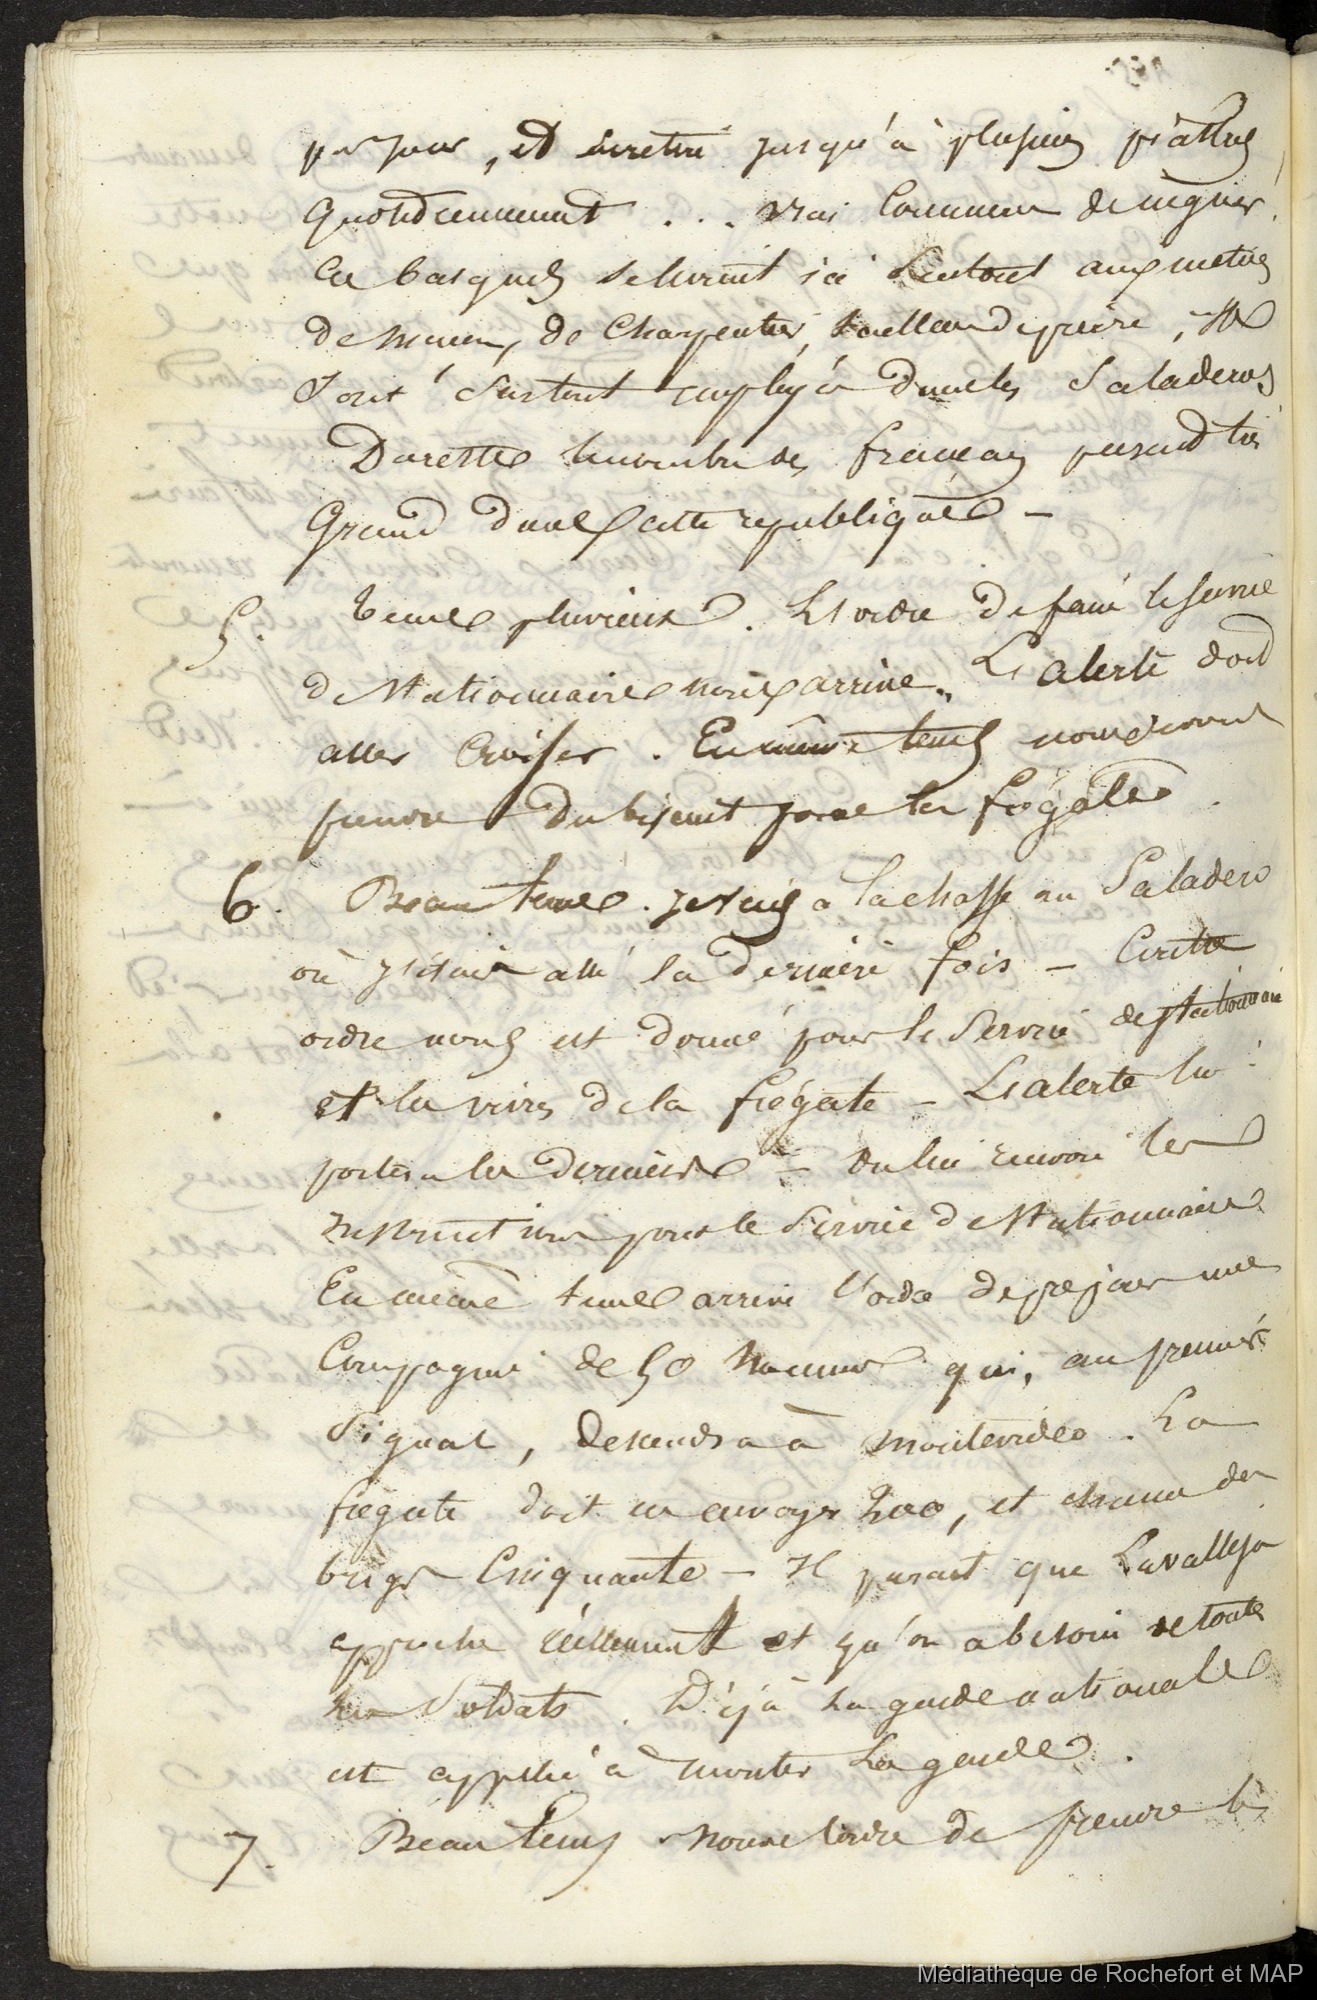 par jour, et surtout jusqu'à plusieurs piastres
quotidiennement ... vrai commerce de nègrier.
Les basques se livrent ici surtout aux métiers
de maçon, de charpentier, tailleur de pierre, ils
sont surtout employés dans les Saladeros
Du reste le nombre des français parait très
Grand dans cette république -
5. Tems pluvieux. L'ordre de faire le service
de Stationnaire nous arrive. L'alerte doit
aller croiser. En même tems nous devons
prendre du biscuit pour la frégate.
6. Beau tems. Je vais à la chasse au Saladero
où j'étais allé la dernière fois - Contre
ordre nous est donné pour le service de stationnaire
et les vivres de la frégate - L'alerte lui
portera les derniers - on lui envoie les
instructions pour le service de Stationnaire
En même tems arrive l'ordre de préparer une
Compagnie de 50 hommes qui, au premier
signal, descendra à Montevideo. La
frégate doit en envoyer 200, et chacun des
brigs Cinquante - Il parait que Lavalleja
approche réellement et qu'on a besoin de toutes
les Soldats. Déjà la garde nationale
est appelée à monter la garde.
7. Beau tems nouvel ordre de prendre les
Médiathèque de Rochefort et MAP